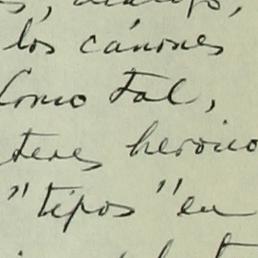 los cánones
Como tal,
teres heroico
"tipos" en